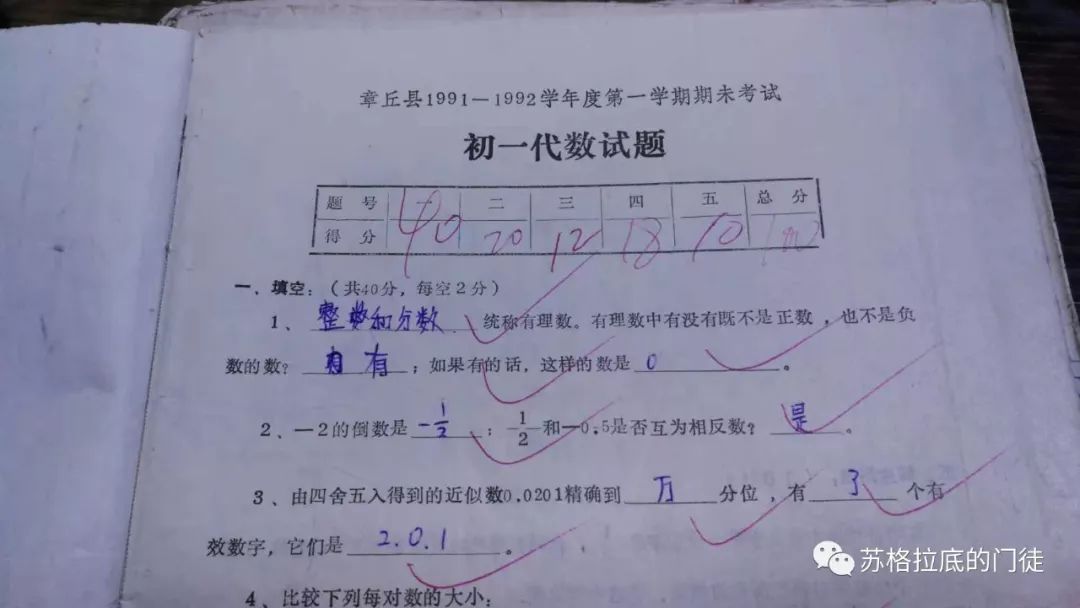 章丘县1991—1992学年度第一学期期未考试
初一代数试题
题 号 一 二 三 四 五 总 分
得 分 40 20 12 18 10 100
一、填空：（共40分，每空2分）
1、 整数和分数 统称有理数。有理数中有没有既不是正数，也不是负
数的数？ 有 ；如果有的话，这样的数是 0 。
2、—2的倒数是 -1/2 ；1/2和—0.5是否互为相反数？ 是 。
3、由四舍五入得到的近似数0.0201精确到 万 分位，有 3 个有
效数字，它们是 2.0.1 。
4、比较下列每对数的大小：
苏格拉底的门徒